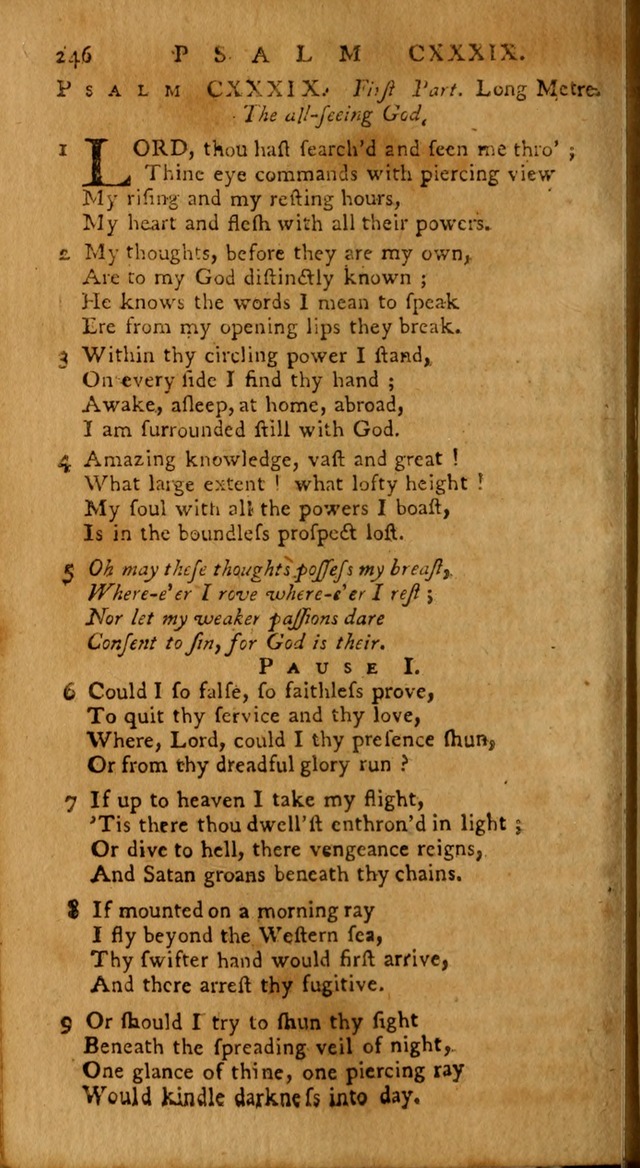 246 PSALM CXXXIX.
PSALM CXXXIX. Firſt Part. Long Metre.
The all-ſeeing God.
1 LORD, thou haſt ſearch'd and ſeen me thro' ;
Thine eye commands with piercing view
My riſing and my reſting hours,
My heart and fleſh with all their powers.
2 My thoughts, before they are my own,
Are to my God diſtinctly known ;
He knows the words I mean to ſpeak
Ere from my opening lips they break.
3 Within thy circling power I ſtand,
On every ſide I find thy hand ;
Awake, aſleep, at home, abroad,
I am ſurrounded ſtill with God.
4 Amazing knowledge, vaſt and great !
What large extent ! what lofty height !
My ſoul with all the powers I boaſt,
Is in the boundleſs proſpect loſt.
5 Oh may theſe thoughts poſſeſs my breaſt,
Where-e'er I rove where-e'er I reſt ;
Nor let my weaker paſſions dare
Conſent to ſin, for God is their.
PAUSE I.
6 Could I ſo falſe, ſo faithleſs prove,
To quit thy ſervice and thy love,
Where, Lord, could I thy preſence ſhun,
Or from thy dreadful glory run ?
7 If up to heaven I take my flight,
'Tis there thou dwell'ſt enthron'd in light ;
Or dive to hell, there vengeance reigns,
And Satan groans beneath thy chains.
8 If mounted on a morning ray
I fly beyond the Weſtern ſea,
Thy ſwifter hand would firſt arrive,
And there arreſt thy fugitive.
9 Or ſhould I try to ſhun thy ſight
Beneath the ſpreading veil of night,
One glance of thine, one piercing ray
Would kindle darkneſs into day.